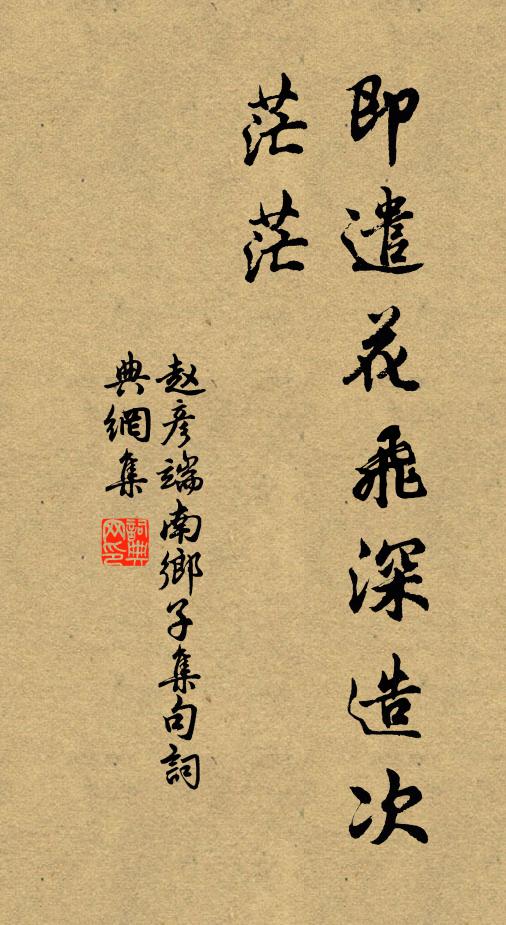 即遣花飛深造次
茫茫
赵彦端南鄉子集句詞
典網集
詞典
网印